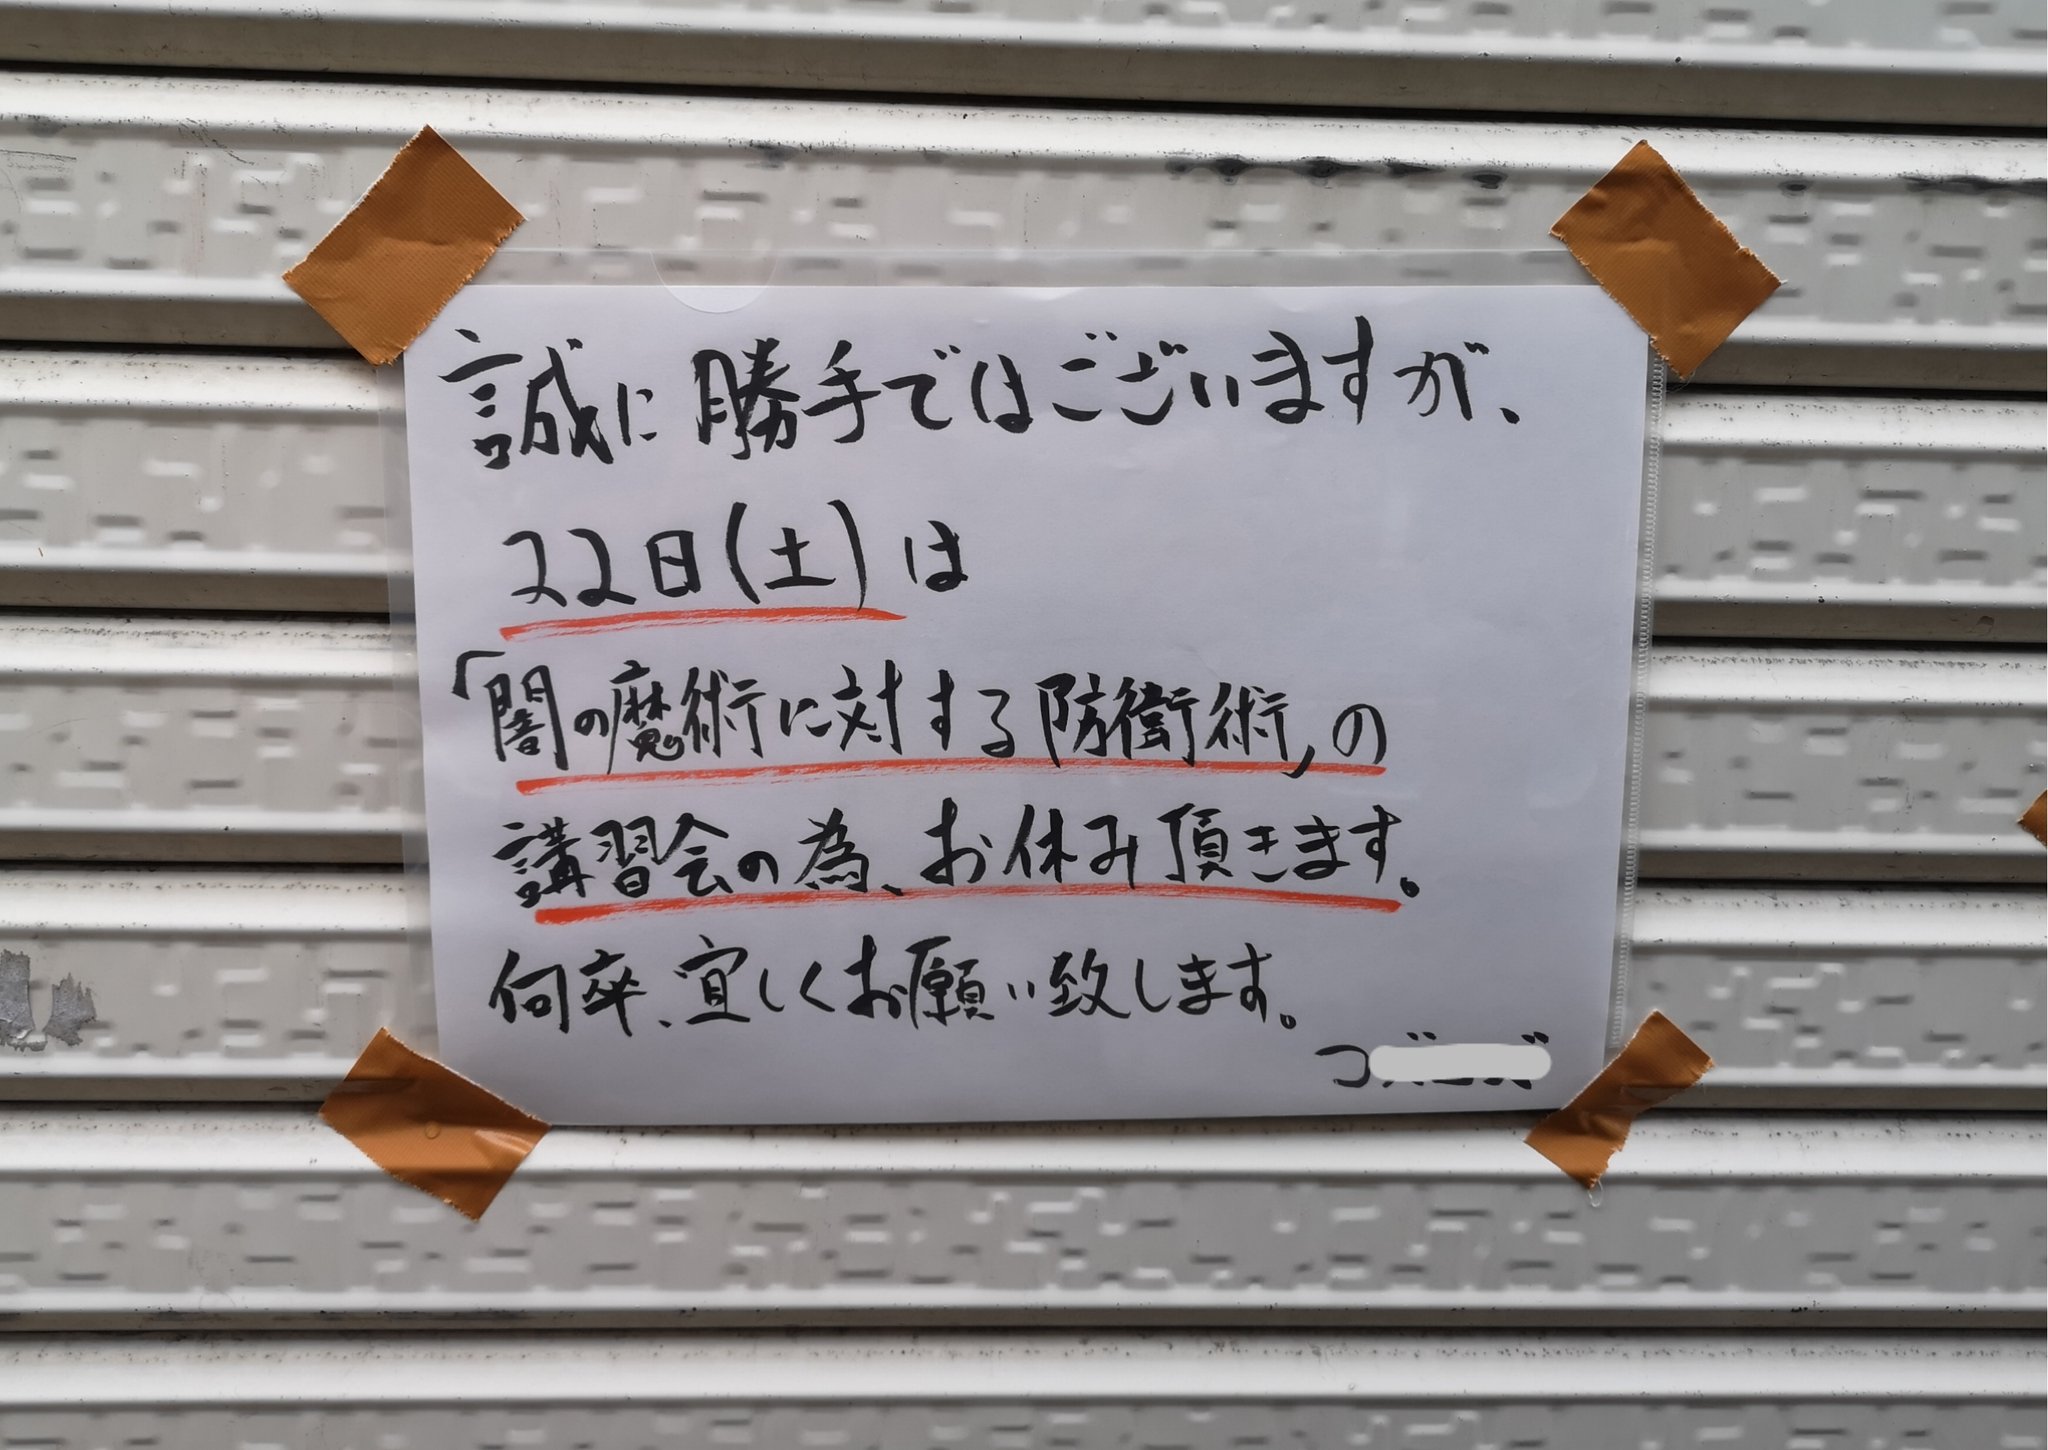 誠に勝手ではございますが、
22日(土)は
「闇の魔術に対する防衛術」の
講習会の為、お休み頂きます。
何卒、宜しくお願い致します。